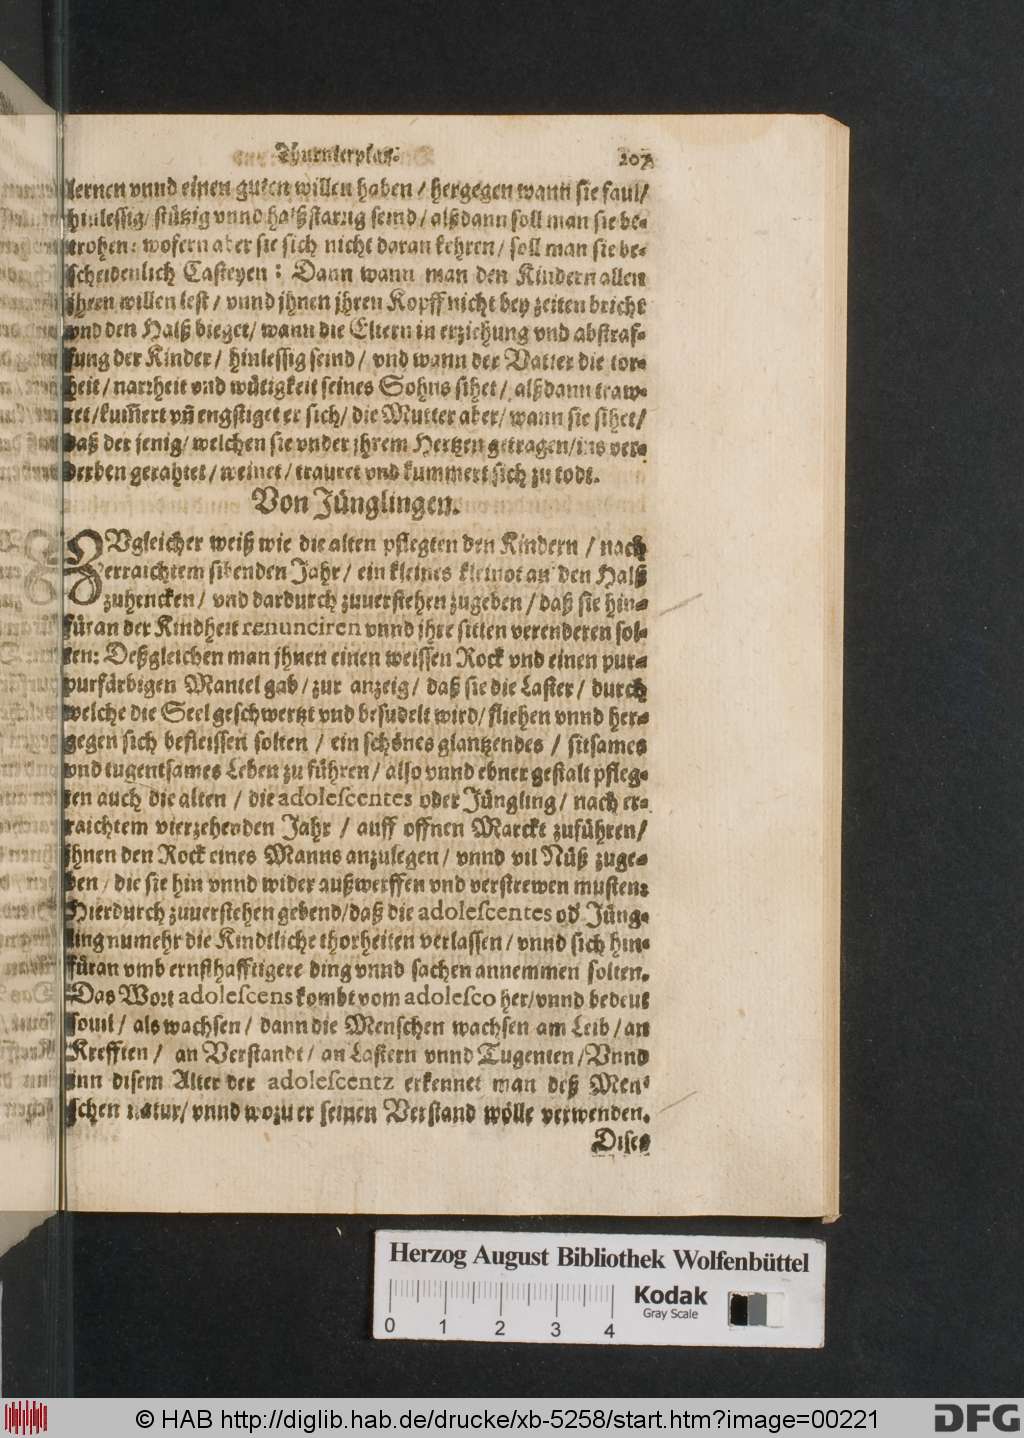 Thurnierplatz. 207
lernen vnnd einen guten willen haben / hergegen wann sie faul/
hinlessig/ stützig vnnd halßstarrig seind / alßdann soll man sie be-
trohen: wofern aber sie sich nicht daran kehren / soll man sie be-
scheidenlich Casteyen: Dann wann man den Kindern allen
jhren willen lest / vnnd jhnen jhren Kopff nicht bey zeiten bricht
vnd den Halß bieget / wann die Eltern in erziehung vnd abstraf-
fung der Kinder / hinlessig seind / vnd wann der Vatter die tor-
heit / narrheit vnd wütigkeit seines Sohns sihet / alßdann traw-
ret /kum̃ert vñ engstiget er sich/ die Mutter aber/ wann sie sihet/
daß der jenig/ welchen sie vnder jhrem Hertzen getragen/ins ver-
derben gerahtet / weinet / trauret vnd kummert sich zu todt.
Von Jünglingen.
ZVgleicher weiß wie die alten pflegten den Kindern / nach
erraichtem sibenden Jahr / ein kleines kleinot an den Halß
zuhencken / vnd dardurch zuuerstehen zugeben / daß sie hin-
füran der Kindheit renunciren vnnd jhre sitten verenderen sol-
ten: Deßgleichen man jhnen einen weissen Rock vnd einen pur-
purfärbigen Mantel gab / zur anzeig / daß sie die Laster / durch
welche die Seel geschwertzt vnd besudelt wird/ fliehen vnnd her-
gegen sich befleissen solten / ein schönes glantzendes / sitsames
vnd tugentsames Leben zu führen / also vnnd ebner gestalt pfleg-
ten auch die alten / die adolescentes oder Jüngling / nach er-
raichtem vierzehenden Jahr / auff offnen Marckt zuführen/
jhnen den Rock eines Manns anzulegen / vnnd vil Nüß zuge-
ben / die sie hin vnnd wider außwerffen vnd verstrewen musten:
Hierdurch zuuerstehen gebend/daß die adolescentes od' Jüng-
ling numehr die Kindtliche thorheiten verlassen / vnnd sich hin-
füran vmb ernsthafftigere ding vnnd sachen annemmen solten.
Das Wort adolescens kombt vom adolesco her/vnnd bedeut
souil / als wachsen / dann die Menschen wachsen am Leib / an
Krefften / an Verstandt / an Lastern vnnd Tugenten /Vnnd
inn disem Alter der adolescentz erkennet man deß Men-
schen natur/ vnnd wozu er seinen Verstand wölle verwenden.
Dises
Herzog August Bibliothek Wolfenbüttel
Kodak
Gray Scale
0 1 2 3 4
© HAB http://diglib.hab.de/drucke/xb-5258/start.htm?image=00221
DFG